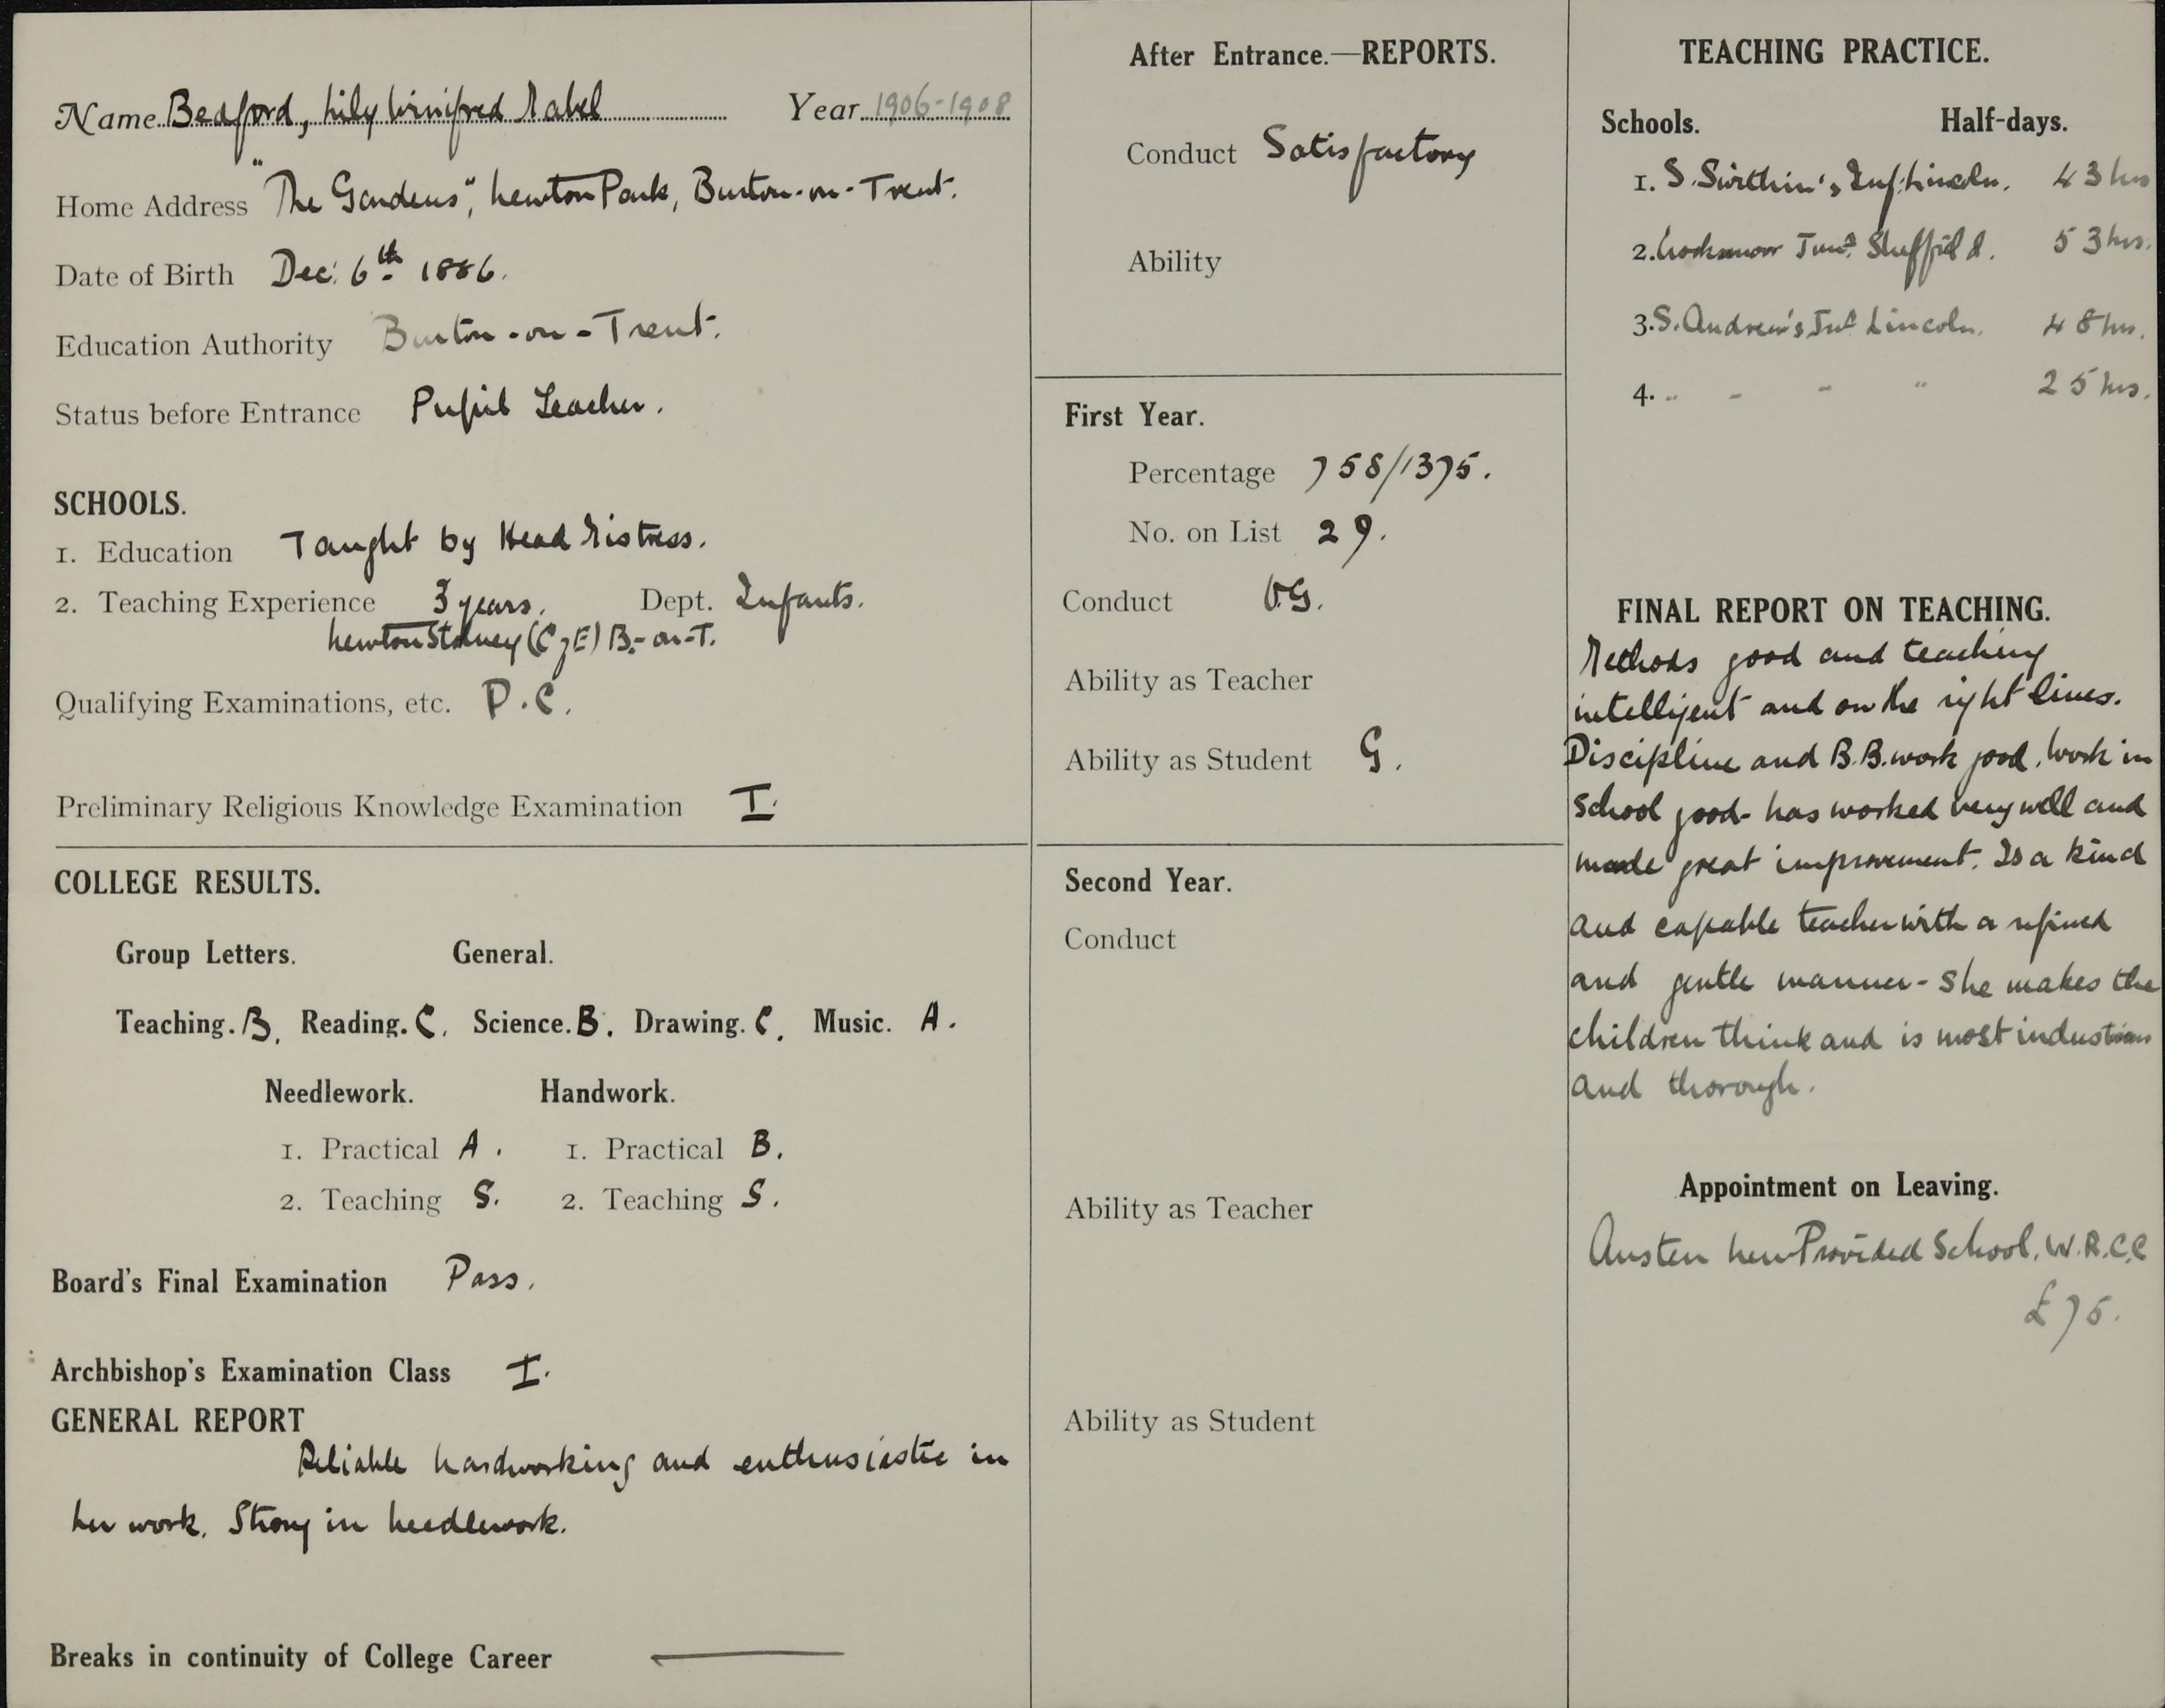 Name Bedford, Lily Winifred Mabel Year 1906-1908
Home Address "The Gardens", Newton Park, Burton-on-Trent.
Date of Birth Dec: 6th 1886.
Education Authority Burton-on-Trent.
Status before Entrance Pupil Teacher.
SCHOOLS.
1. Education Taught by Head Mistress.
2. Teaching Experience 3 years. Dept. Infants.
Newton Solney (C of E) B.-on-T.
Qualifying Examinations, etc. P.C.
Preliminary Religious Knowledge Examination I.
COLLEGE RESULTS.
Group Letters. General.
Teaching. B. Reading. C. Science. B. Drawing. C. Music. A.
Needlework. Handwork.
1. Practical A. 1. Practical B.
2. Teaching S. 2. Teaching S.
Board's Final Examination Pass.
Archbishop's Examination Class I.
GENERAL REPORT
Reliable hardworking and enthusiastic in
her work. Strong in Needlework.
Breaks in continuity of College Career
After Entrance.—REPORTS.
Conduct Satisfactory
Ability
First Year.
Percentage 758/1375.
No. on List 29.
Conduct VG.
Ability as Teacher
Ability as Student G.
Second Year.
Conduct
Ability as Teacher
Ability as Student
TEACHING PRACTICE.
Schools. Half-days.
1. S. Swithin's Inf: Lincoln. 43 hrs
2. Sheffield. 53 hrs.
3. S. Andrew's Inf. Lincoln. 48 hrs.
4. " - - " 25 hrs.
FINAL REPORT ON TEACHING.
Methods good and teaching
intelligent and on the right lines.
Discipline and B.B. work good. Work in
School good - has worked very well and
made great improvement. Is a kind
and capable teacher with a refined
and gentle manner - She makes the
children think and is most industrious
and thorough.
Appointment on Leaving.
Austen New Provided School. W.R.C.C
£75.